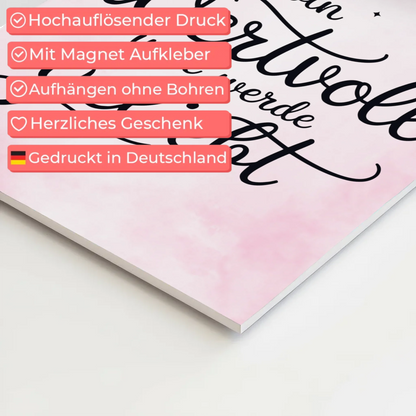 Hochauflösender Druck
Mit Magnet Aufkleber
Aufhängen ohne Bohren
Herzliches Geschenk
Gedruckt in Deutschland
werde